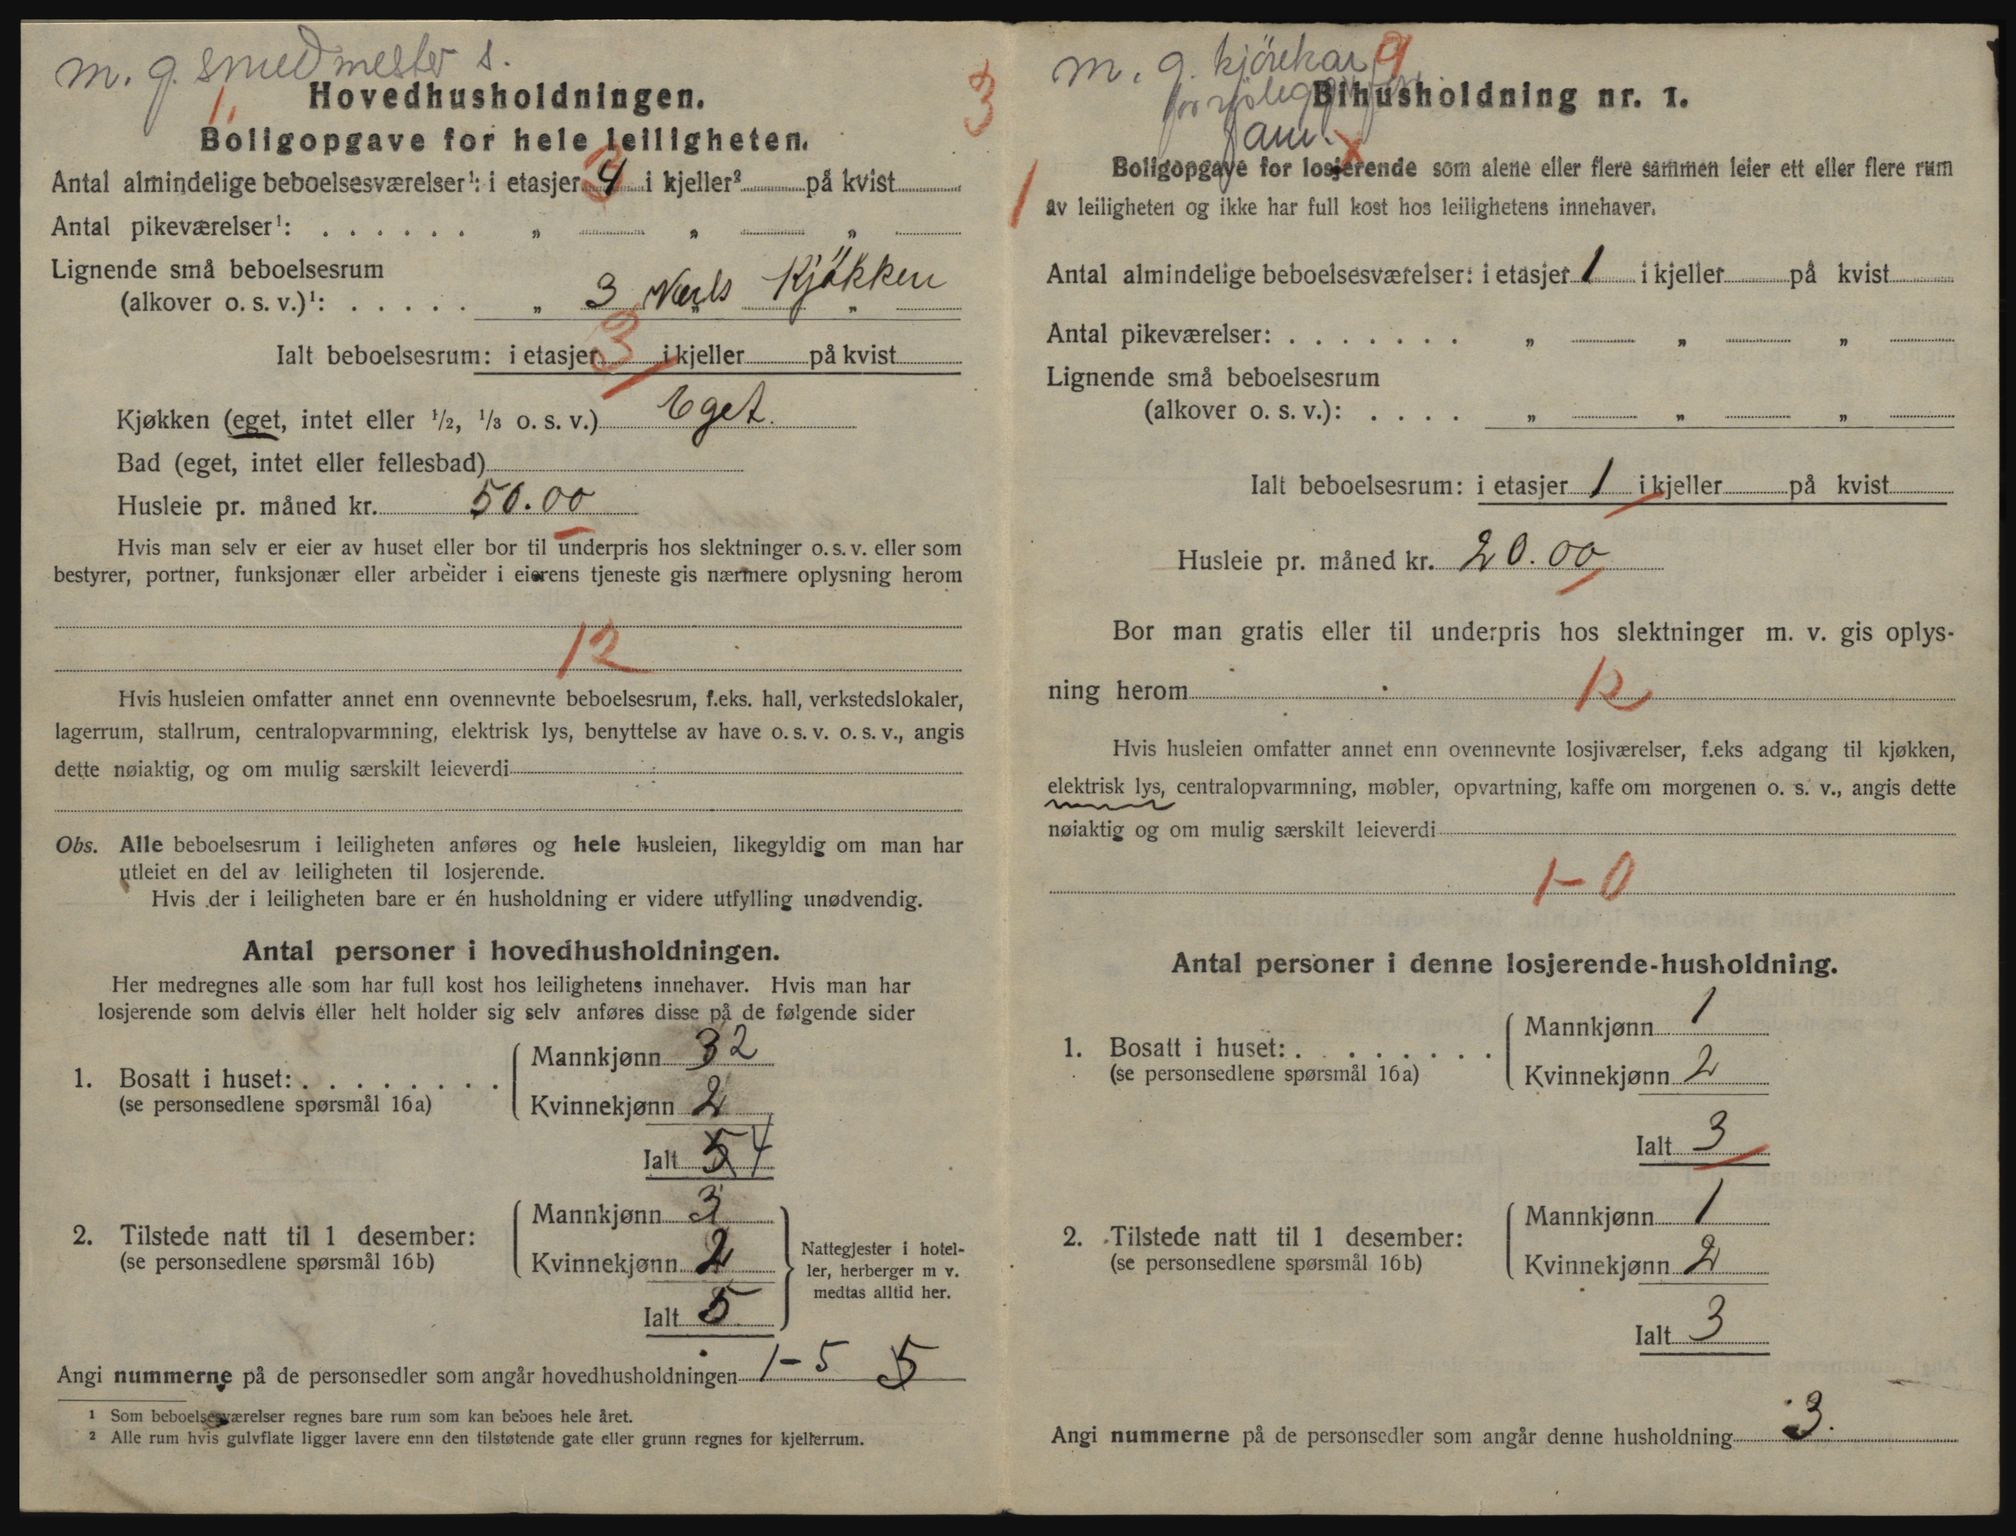 m. g. smedmester s.
1.
3
Hovedhusholdningen.
Boligopgave for hele leiligheten.
Antal almindelige beboelsesværelser¹: i etasjer 4 i kjeller² på kvist
Antal pikeværelser¹: . . . . . . „ „ „
Lignende små beboelsesrum
(alkover o. s. v.)¹: . . . . . „ 3 Værls „ Kjökken „
Ialt beboelsesrum: i etasjer 3 i kjeller på kvist
Kjøkken (eget, intet eller 1/2, 1/3 o. s. v.) Eget.
Bad (eget, intet eller fellesbad)
Husleie pr. måned kr. 50.00
Hvis man selv er eier av huset eller bor til underpris hos slektninger o. s. v. eller som
bestyrer, portner, funksjonær eller arbeider i eierens tjeneste gis nærmere oplysning herom
12
Hvis husleien omfatter annet enn ovennevnte beboelsesrum, f.eks. hall, verkstedslokaler,
lagerrum, stallrum, centralopvarmning, elektrisk lys, benyttelse av have o. s. v. o. s. v., angis
dette nøiaktig, og om mulig særskilt leieverdi
Obs. Alle beboelsesrum i leiligheten anføres og hele husleien, likegyldig om man har
utleiet en del av leiligheten til losjerende.
Hvis der i leiligheten bare er én husholdning er videre utfylling unødvendig.
Antal personer i hovedhusholdningen.
Her medregnes alle som har full kost hos leilighetens innehaver. Hvis man har
losjerende som delvis eller helt holder sig selv anføres disse på de følgende sider
Mannkjønn 3 2
1. Bosatt i huset: . . . . . . . .
(se personsedlene spørsmål 16 a)
Kvinnekjønn 2
Ialt 5 4
Mannkjønn 3
2. Tilstede natt til 1 desember:
(se personsedlene spørsmål 16 b)
Kvinnekjønn 2
Ialt 5
Nattegjester i hotel-
ler, herberger m v.
medtas alltid her.
Angi nummerne på de personsedler som angår hovedhusholdningen 1 - 5 5
¹ Som beboelsesværelser regnes bare rum som kan beboes hele året.
² Alle rum hvis gulvflate ligger lavere enn den tilstøtende gate eller grunn regnes for kjellerrum.
m. g. kjörekar 9
fam. x
Bihusholdning nr. 1.
1
Boligopgave for losjerende som alene eller flere sammen leier ett eller flere rum
av leiligheten og ikke har full kost hos leilighetens innehaver.
Antal almindelige beboelsesværelser: i etasjer 1 i kjeller på kvist
Antal pikeværelser: . . . . . . . „ „ „
Lignende små beboelsesrum
(alkover o. s. v.): . . . . „ „ „
Ialt beboelsesrum: i etasjer 1 i kjeller på kvist
Husleie pr. måned kr. 20.00
Bor man gratis eller til underpris hos slektninger m. v. gis oplys-
ning herom 12
Hvis husleien omfatter annet enn ovennevnte losjiværelser, f.eks adgang til kjøkken,
elektrisk lys, centralopvarmning, møbler, opvartning, kaffe om morgenen o. s. v., angis dette
nøiaktig og om mulig særskilt leieverdi
1-0
Antal personer i denne losjerende-husholdning.
Mannkjønn 1
1. Bosatt i huset: . . . . . . . .
(se personsedlene spørsmål 16 a)
Kvinnekjønn 2
Ialt 3
Mannkjønn 1
2. Tilstede natt til 1 desember:
(se personsedlene spørsmål 16 b)
Kvinnekjønn 2
Ialt 3
Angi nummerne på de personsedler som angår denne husholdning 3.